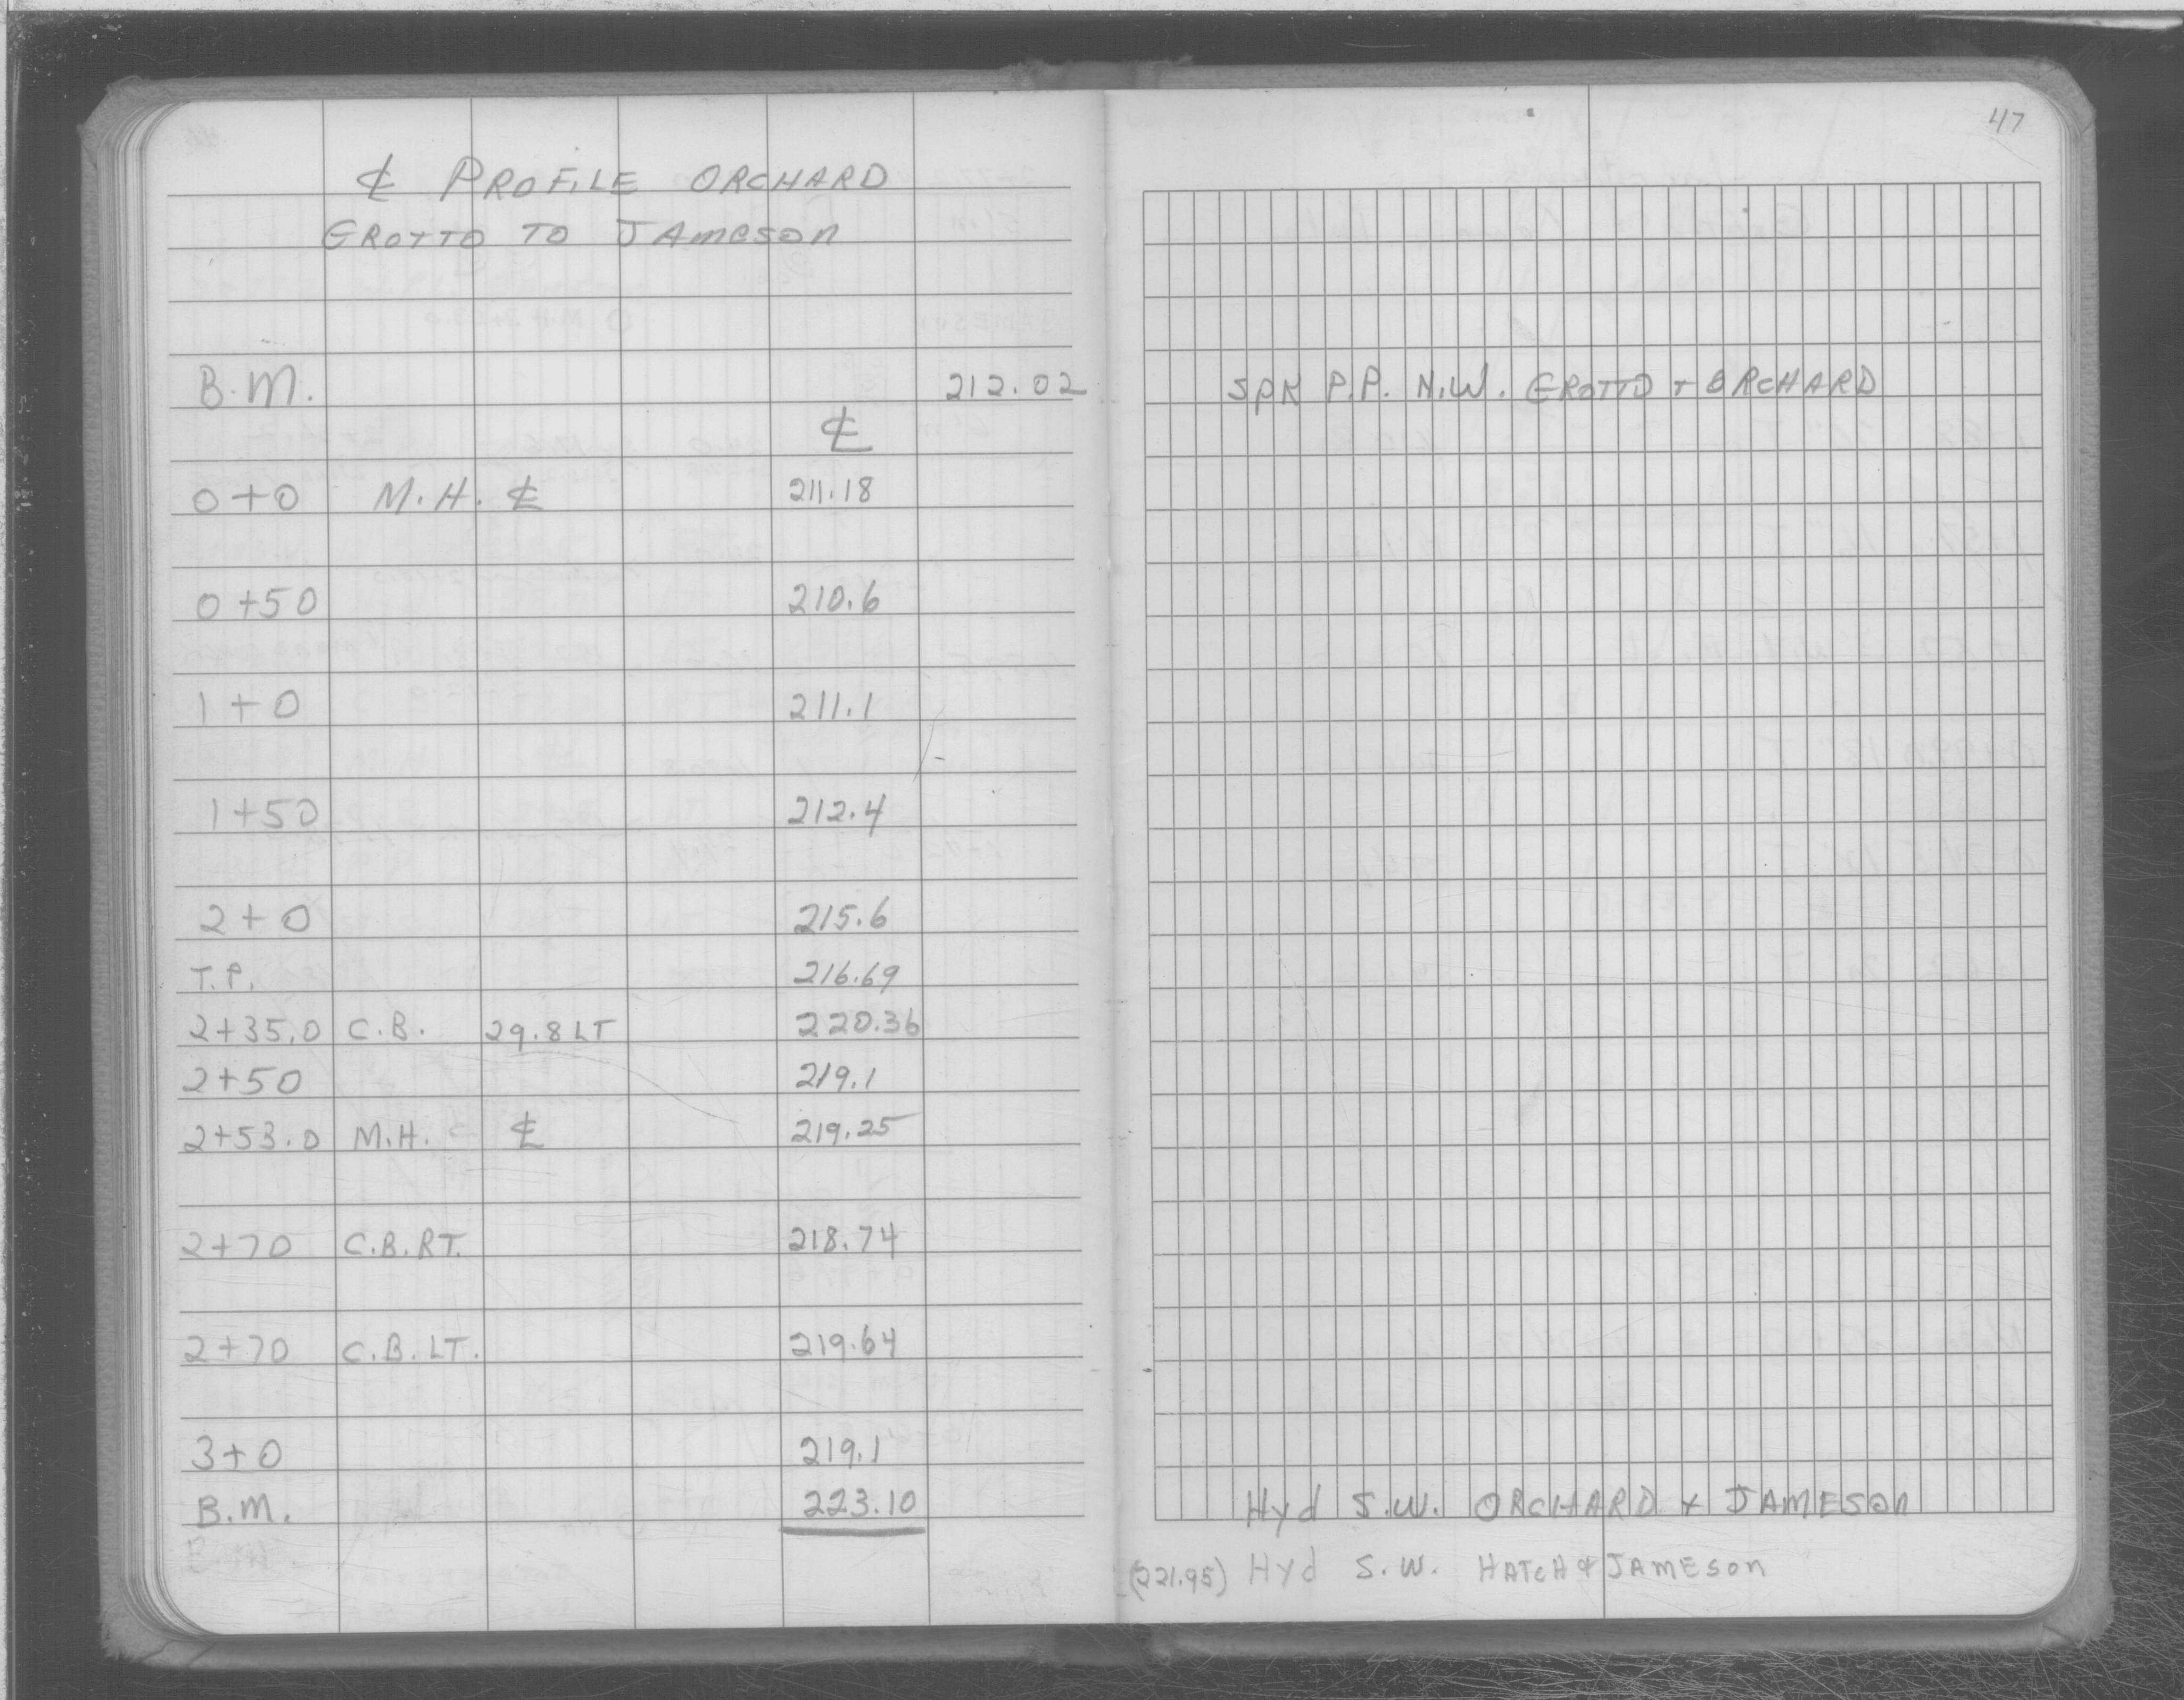 47
℄ PROFILE ORCHARD
GROTTO TO JAMESON
B.M. 212.02 SPK P.P. N.W. GROTTO + ORCHARD
℄
0+0 M.H. ℄ 211.18
0+50 210.6
1+0 211.1
1+50 212.4
2+0 215.6
T.P. 216.69
2+35.0 C.B. 29.8 LT 220.36
2+50 219.1
2+53.0 M.H. ℄ 219.25
2+70 C.B. RT. 218.74
2+70 C.B. LT. 219.64
3+0 219.1
B.M. 223.10 Hyd S.W. ORCHARD + JAMESON
(221.95) Hyd S.W. HATCH & JAMESON